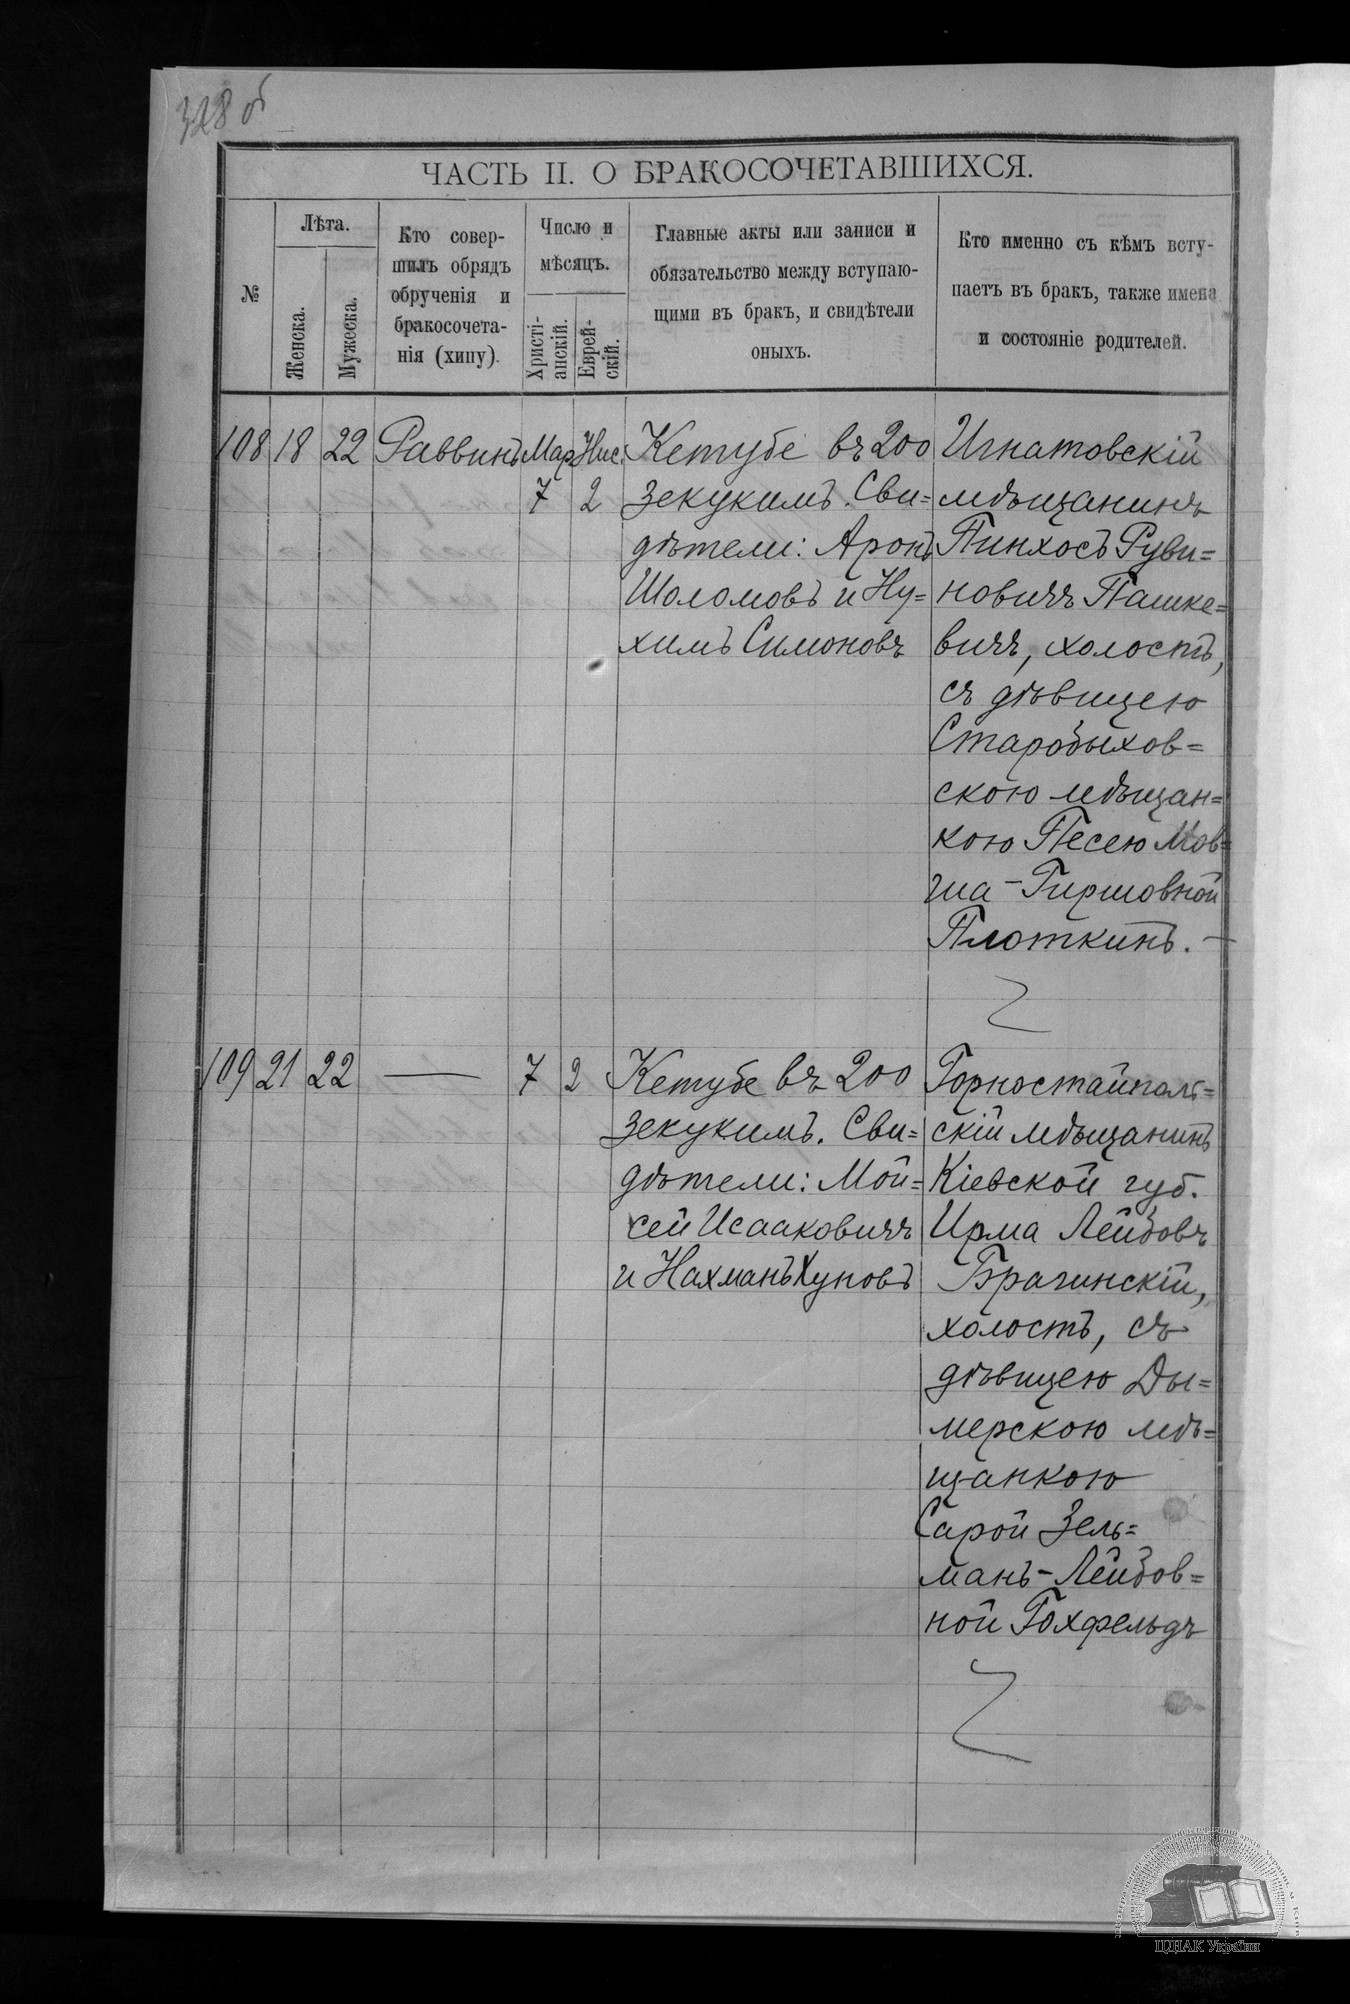 328 об
ЧАСТЬ II. О БРАКОСОЧЕТАВШИХСЯ.
№
Лѣта.
Женска.
Мужеска.
Кто совер-
шилъ обрядъ
обрученія и
бракосочета-
нія (хипу).
Число и
мѣсяцъ.
Христі-
анскій.
Еврей-
скій.
Главные акты или записи и
обязательство между вступаю-
щими въ бракъ, и свидѣтели
оныхъ.
Кто именно съ кѣмъ всту-
паетъ въ бракъ, также имена
и состояніе родителей.
108 18 22 Раввинъ Мар. Нис.
7 2
Кетубе въ 200
зекукимъ. Сви=
дѣтели: Аронъ
Шоломовъ и Ну=
химъ Симоновъ
Игнатовскій
мѣщанинъ
Пинхосъ Руви=
новичъ Пашке=
вичъ, холостъ,
съ дѣвицею
Старобыхов=
скою мѣщан=
кою Песею Мов=
ша-Гиршовной
Плоткинъ. —
109 21 22 — 7 2
Кетубе въ 200
зекукимъ. Сви=
дѣтели: Мой=
сей Исааковичъ
и Нахманъ Хуновъ
Горностайполь=
скій мѣщанинъ
Кіевской губ.
Ирма Лейбовъ
Брагинскій,
холостъ, съ
дѣвицею Ды=
мерскою мѣ=
щанкою
Сарой Зель=
манъ-Лейбов=
ной Гохфельдъ
ЦДІАК України